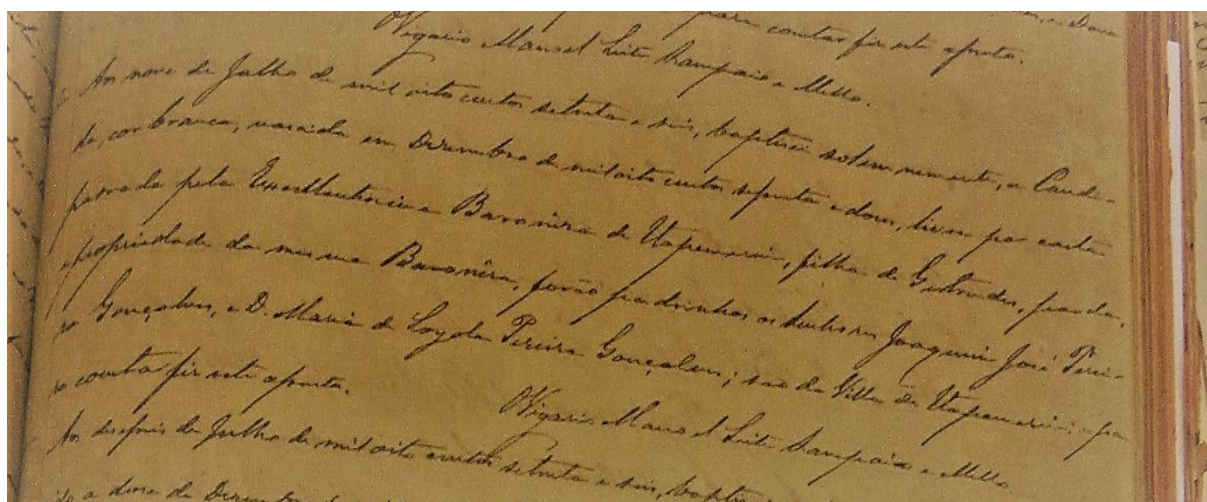 para constar fiz este assento.
O Vigario Manoel Leite Sampaio e Mello.
Aos nove de Julho de mil oito centos setenta e seis, baptisei solemnemente, a Candi-
da, cor branca, nascida em Dezembro de mil oito centos setenta e dous, livre por carta
passada pela Excellentissima Baroneza de Itapemerim, filha de Gertrudes, parda,
e propriedade da mesma Baroneza, forão padrinhos os Senhores Joaquim José Perei-
ra Gonçalves, e D. Maria de Loyola Pereira Gonçalves; são da Villa de Itapemerim; e pa
ra constar fiz este assento.
O Vigario Manoel Leite Sampaio e Mello
Aos deseseis de Julho de mil oito centos setenta e seis, baptisei
a doze de Dezembro